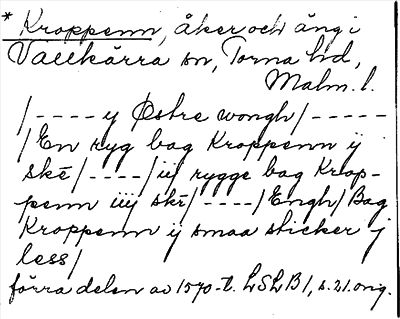 * Kroppenn, åker och äng i
Vallkärra sn, Torna hd,
Malm. l.
/---- y Østre wongh/-----
/En ryg bag Kroppenn ij
skē/----/iij rygge bag Krop-
penn iiij skē/----/Engh/Bag
Kroppenn ij smaa sticker j
less/
förra delen av 1570-t. LSLB 1, s. 21. orig.